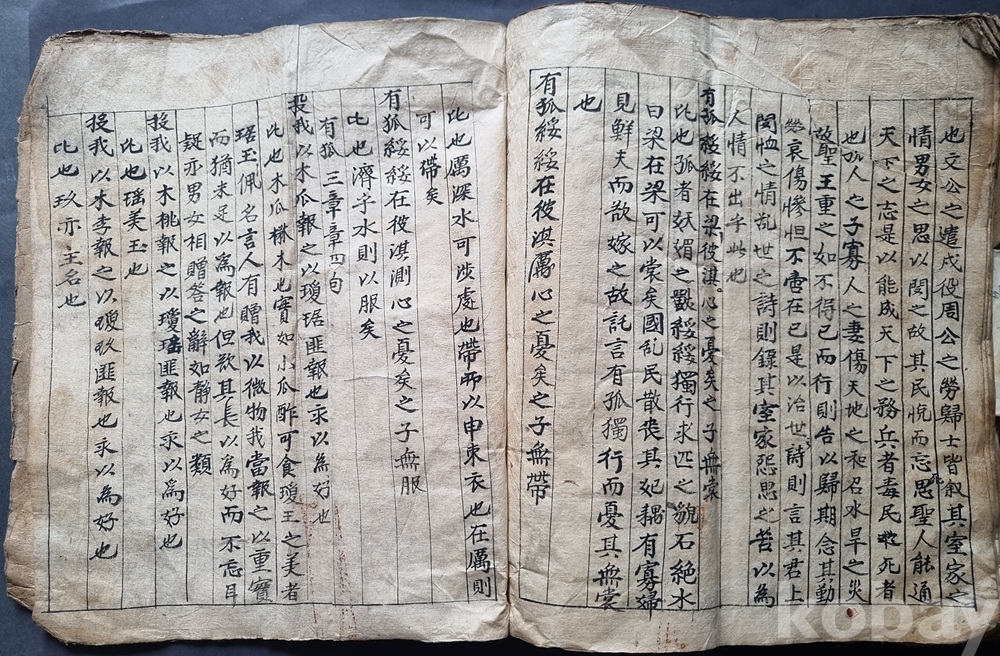 也文公之遣戍役周公之勞歸士皆叙其室家之
情男女之思以閔之故其民悅而忘死聖人能通
天下之志是以能成天下之務兵者毒民於死者
也孤人之子寡人之妻傷天地之和召水旱之災
故聖王重之如不得已而行則告以歸期念其勤
勞哀傷慘怛不啻在已是以治世詩則言其君上
閔恤之情乱世之詩則錄其室家怨思之苦以為
人情不出乎此也
有狐綏綏在彼淇梁心之憂矣之子無裳
比也狐者妖媚之獸綏綏獨行求匹之貌石絶水
曰梁在梁可以裳矣國乱民散喪其妃耦有寡婦
見鮮夫而欲嫁之故託言有狐獨行而憂其無裳
也
有狐綏綏在彼淇厲心之憂矣之子無帶
比也厲深水可涉處也帶所以申束衣也在厲則
可以帶矣
有狐綏綏在彼淇測心之憂矣之子無服
比也濟乎水則以服矣
有狐三章章四句
投我以木瓜報之以瓊琚匪報也永以為好也
比也木瓜楙木也實如小瓜酢可食瓊玉之美者
琚玉佩名言人有贈我以微物我當報之以重寶
而猶未足以為報也但欲其長以為好而不忘耳
疑亦男女相贈答之辭如靜女之類
投我以木桃報之以瓊瑤匪報也永以為好也
比也瑤美玉也
投我以木李報之以瓊玖匪報也永以為好也
比也玖亦玉名也
kopay